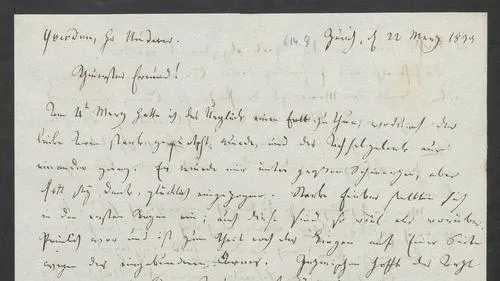 Yverdon, Hr Niederer. 614. 9 Zürich, d 22 Merz 1839
Theuerster Freund!
Am 4t Merz hatte ich das Unglück einen Fall zu thun, wodurch der
linke Arm stark gequetscht wurde, und das Achselgelenk aus
einander gieng. Er wurde mir unter großen Schmerzen, aber
Gott sey dank, glücklich eingezogen. Starke Fieber stellten sich
in den ersten Tagen ein; auch diese sind so viel als vorüber.
Peinlich war und ist zum Theil noch das Liegen auf Einer Seite
wegen des eingebundenen Armes. Inzwischen hofft der Arzt